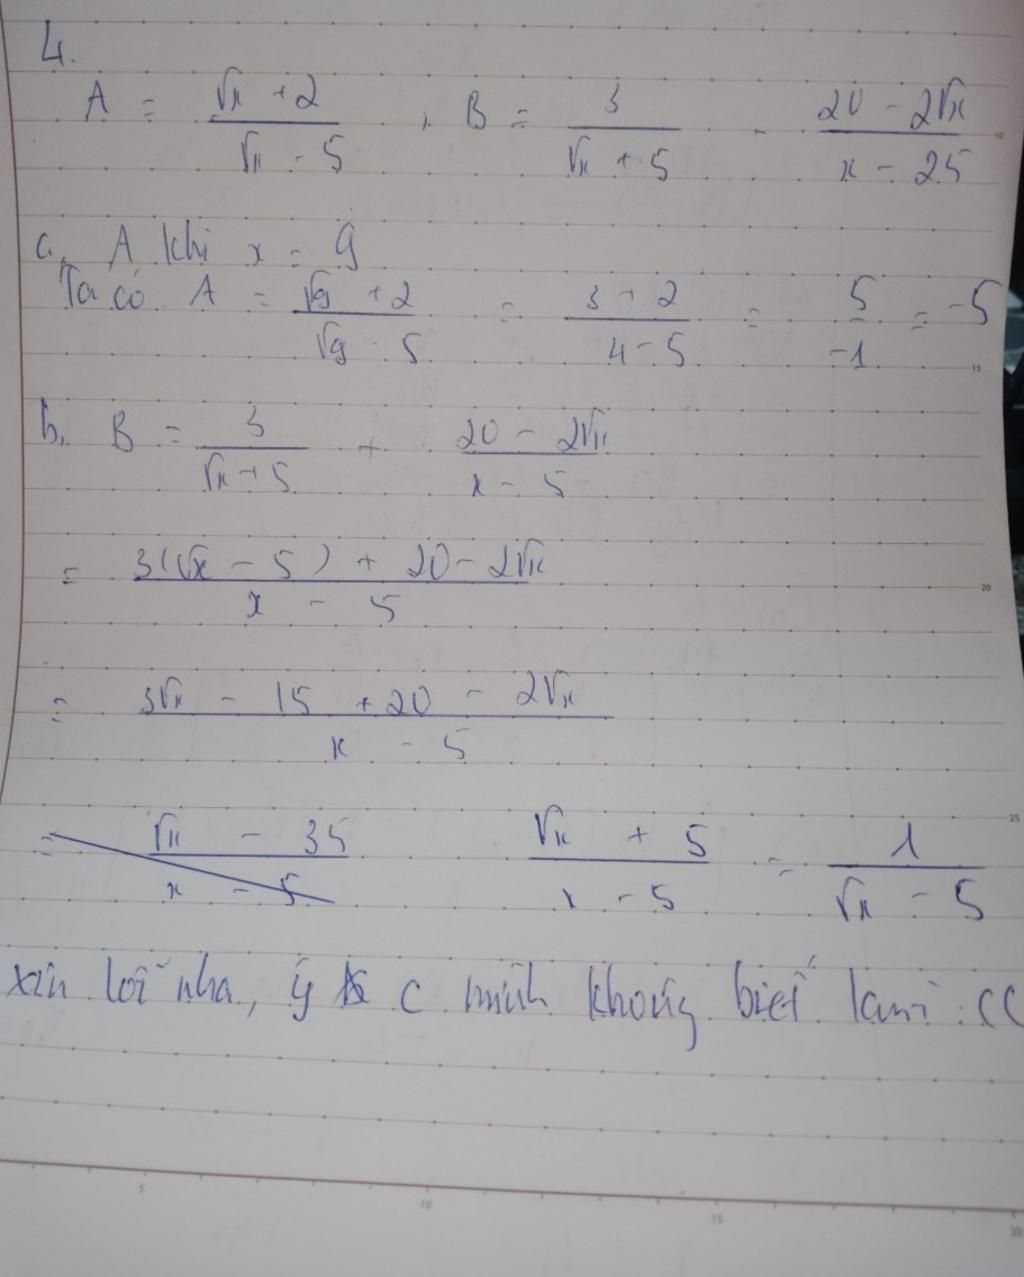 4.
A = (√x + 2)/(√x - 5) , B = 3/(√x + 5) - (20 - 2√x)/(x - 25)
a, A khi x = 9
Ta có A = (√9 + 2)/(√9 - 5) = (3 + 2)/(4 - 5) = 5/-1 = -5
b, B = 3/(√x + 5) + (20 - 2√x)/(x - 5)
= (3(√x - 5) + 20 - 2√x)/(x - 5)
= (3√x - 15 + 20 - 2√x)/(x - 5)
= (√x - 35)/(x - 5) (√x + 5)/(x - 5) = 1/(√x - 5)
xin lỗi nha, ý c mình không biết làm :((
10
15
20
25
5
10
15
20